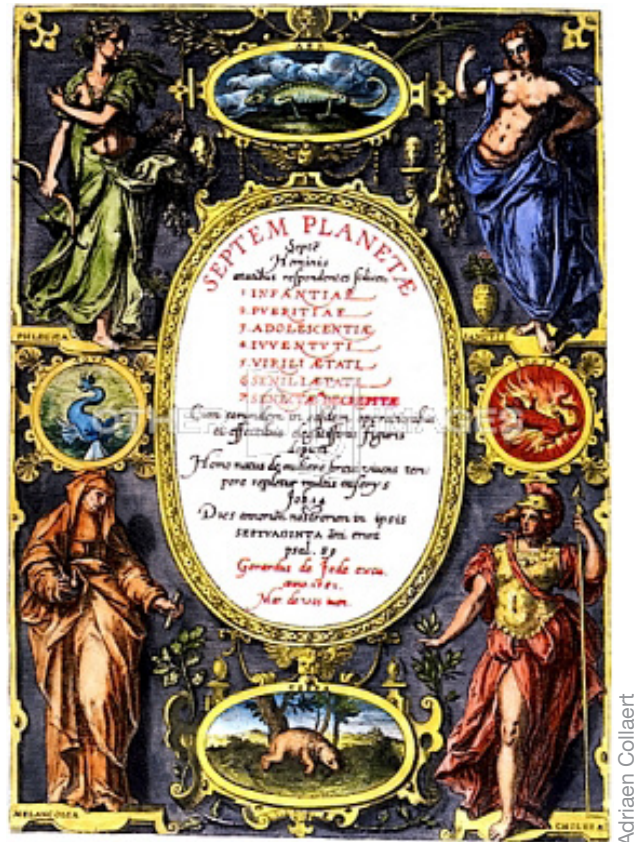 AER
SEPTEM PLANETÆ
Septē
Hominis
ætatibus respondentes
1. INFANTIAE
2. PVERITIAE
3. ADOLESCENTIÆ
4. IVVENTVTI
5. VIRILI ÆTATI
6. SENILI ÆTATI
7. SENECTÆ DECREPITÆ
Cum eorundem in
et effectibus figuris
Homo natus de muliere brevi vivens tem
pore repletur multis miserijs
Job 14
Dies annorum nostrorum in ipsis
SEPTVAGINTA āni erāt
psal. 89
Gerardus de Jode excu.
PHLEGMA
MELANCOLIA
CHOLERA
Adriaen Collaert